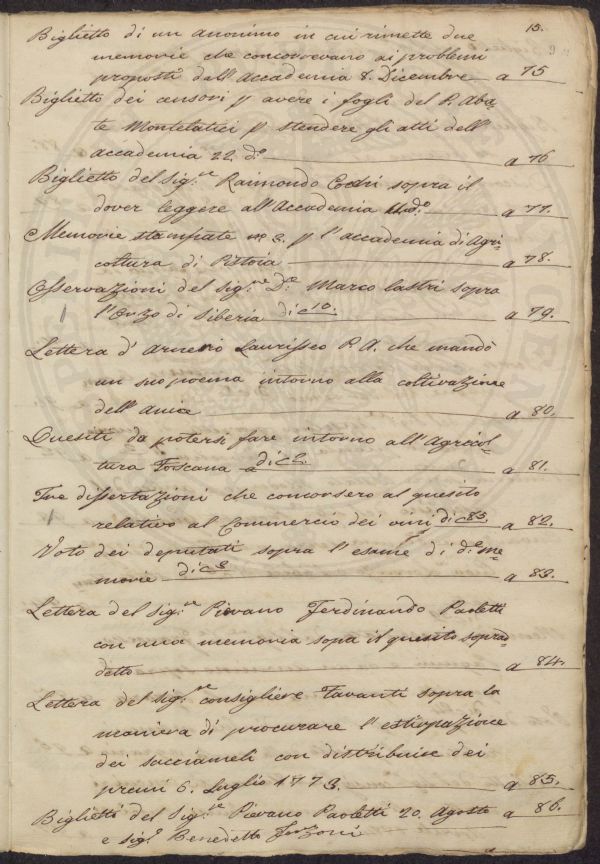 15.
Biglietto di un anonimo in cui rimette due
memorie che concorrevano ai problemi
proposti dall'Accademia 8. Dicembre a 75
Biglietto dei censori p avere i fogli del P. Aba-
te Montelatici p stendere gli atti dell'
accademia 22. do a 76
Biglietto del Sig.re Raimondo Cocchi sopra il
dover leggere all'Accademia do a 77.
Memorie stampate no 3. p l'accademia di Agri-
coltura di Pistoia a 78.
Osservazioni del sig.re D.e Marco Lastri sopra
l'Orzo di Siberia di c 10. a 79.
Lettera d' Laurisseo P. A. che mandò
un suo poema intorno alla coltivazione
dell' a 80.
Quesiti da potersi fare intorno all'Agricol-
tura Toscana di c 2 a 81.
Tre dissertazioni che concorsero al quesito
relativo al Commercio dei vini di c 83. a 82.
Voto dei deputati sopra l'esame di d.e me-
morie di c 3 a 83.
Lettera del Sig.re Pievano Ferdinando Paoletti
con una memoria sopa il quesito sopra-
detto a 84.
Lettera del sig.re consigliere Tavanti sopra la
maniera di procurare l'estirpazione
dei succiameli con distribuire dei
premi 6. Luglio 1773. a 85.
Biglietti del Sig.re Pievano Paoletti 20. Agosto a 86.
e sig.e Benedetto